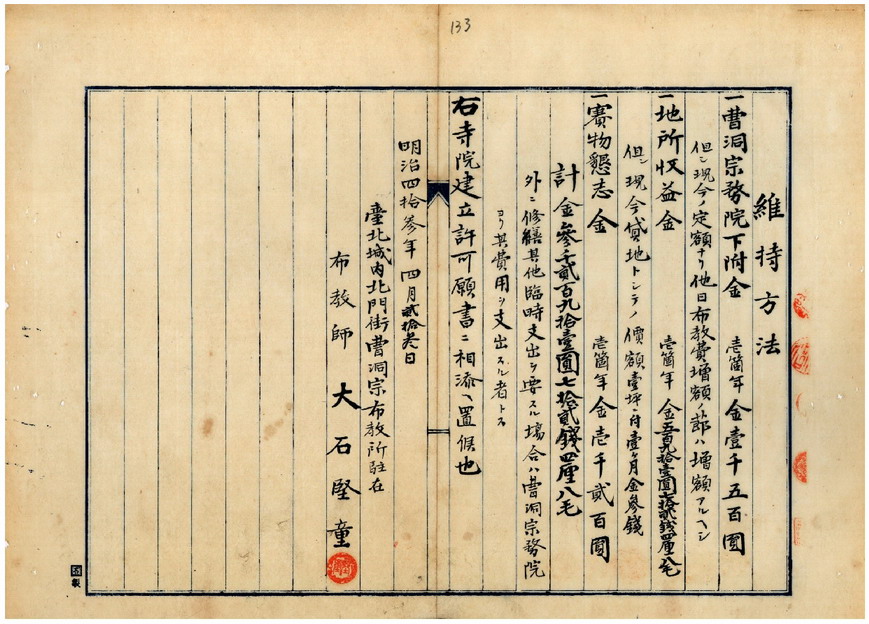 133
維持方法
一曹洞宗務院下附金 壱箇年金壹千五百圓
但シ現今ノ定額ナリ他日布教費増額ノ節ハ増額アルヘシ
一地所收益金 壱箇年金五百九拾壹圓七拾貳錢四厘八毛
但シ現今貸地トシテノ價額壹坪ニ付壹ヶ月金參錢
一賽物懇志金 壱箇年金壱千貳百圓
計金參千貳百九拾壹圓七拾貳錢四厘八毛
外ニ修繕其他臨時支出ヲ要スル場合ハ曹洞宗務院
ヨリ其費用ヲ支出スル者トス
右寺院建立許可願書ニ相添ヘ置候也
明治四拾參年四月貳拾 日
臺北城内北門街曹洞宗布教所駐在
布教師 大石堅童